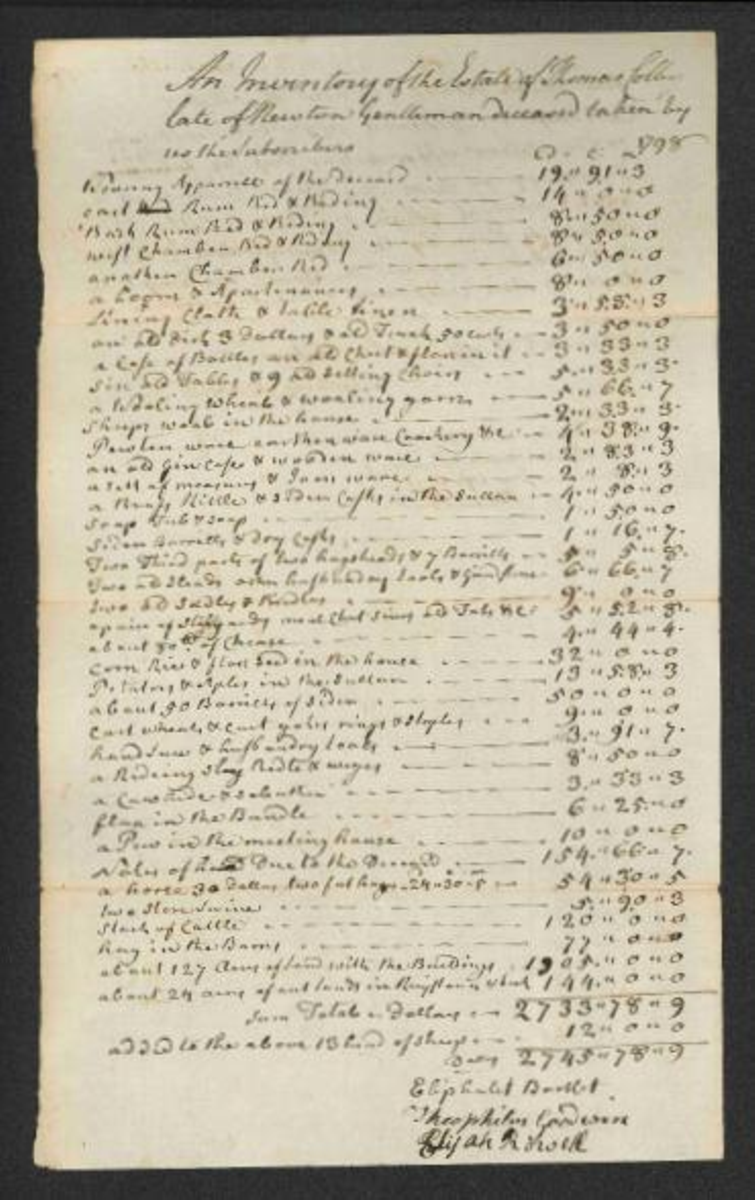 An Inventory of the Estate of Thomas
late of Newton Gentleman deceased taken by
us the Subscribers 1798
D C
Wearing Apparrell of the deceased 19 " 91 " 3
east Rum Bed & Beding 14 " 0 " 0
Back Rum Bed & Beding 8 " 50 " 0
west Chamber Bed & Beding 8 " 50 " 0
another Chamber Bed 6 " 50 " 0
a Loom & Apartenances 8 " 0 " 0
Lining Cloth & table linen 3 " 58 " 3
an old Desk 3 Dollars & old Trunk 50 cents 3 " 50 " 0
a Case of Bottles an old Chest & flower in it 3 " 33 " 3
Six old Tables & 9 old Setting Chairs 5 " 33 " 3
a Woling Wheal & wooling yarn 5 " 66 " 7
Sheeps wool in the house 2 " 33 " 3
Pewter ware earthen ware Crockery &c 4 " 38 " 9
an old Gin Case & wooden ware 2 " 83 " 3
a sett of measures & Iron ware 2 " 8 " 3
a Brass Kittle & Casks in the Sullar 4 " 50 " 0
Soap Tub & soap 1 " 50 " 0
Siden Barrells & dry Casks 1 " 16 " 7
Two Third parts of two hogsheads & 7 Barrills 5 " 5 " 8
Two old Steads husbanday tools & 6 " 66 " 7
two old Sadles & Bridles 9 " 0 " 0
a paire of meal Chest old Tubs &c 5 " 52 " 8
about 80 lb of Chease 4 " 44 " 4
Corn Rie & flax Seed in the house 32 " 0 " 0
Potatoes & Aples in the Sullar 13 " 58 " 3
about 50 Barrills of Sider 50 " 0 " 0
Cart wheals & cart yokes rings & Staples 9 " 0 " 0
hand Saw & husbandry tools 3 " 91 " 7
a Rideing Slay 8 " 50 " 0
a Cowhide & 3 " 33 " 3
flax in the Bundle 6 " 25 " 0
a Pew in the meeting house 10 " 0 " 0
Notes of hand Due to the Deceased 154 " 66 " 7
a horse 30 Dollars two fat hogs 24 " 30 " 5 54 " 30 " 5
two Store Swine 5 " 90 " 3
Stock of Cattle 120 " 0 " 0
hay in the Barns 77 " 0 " 0
about 127 Acres of land with the Buildings 1905 " 0 " 0
about 24 acres of out lands in 144 " 0 " 0
Sum Total in Dollars 2733 " 78 " 9
added to the above 13 head of Sheep 12 " 0 " 0
2745 " 78 " 9
Eliphalet Bartlet
Theophilus Goodwin
Elijah Rowell